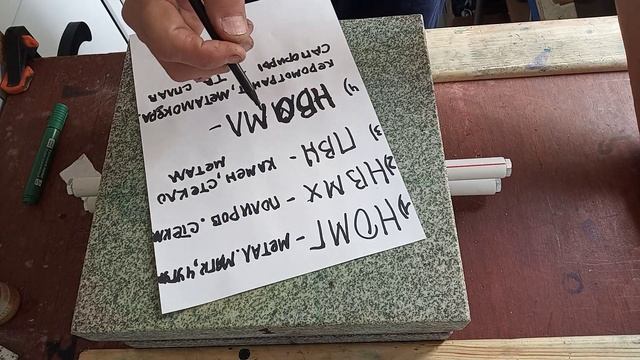 1) НОМГ - МЕТАЛ. МАГК, ЧУГУН
2) НВМХ - ПОЛИРОВ. СТЕКЛ
3) ПВЧ - КАМЕН, СТЕКЛО
МЕТАЛ
4) НВОМЛ -
КЕРОМОГРАНИТ, МЕТАМОКРА
САПФИРЫ ТВ. СПЛАВ